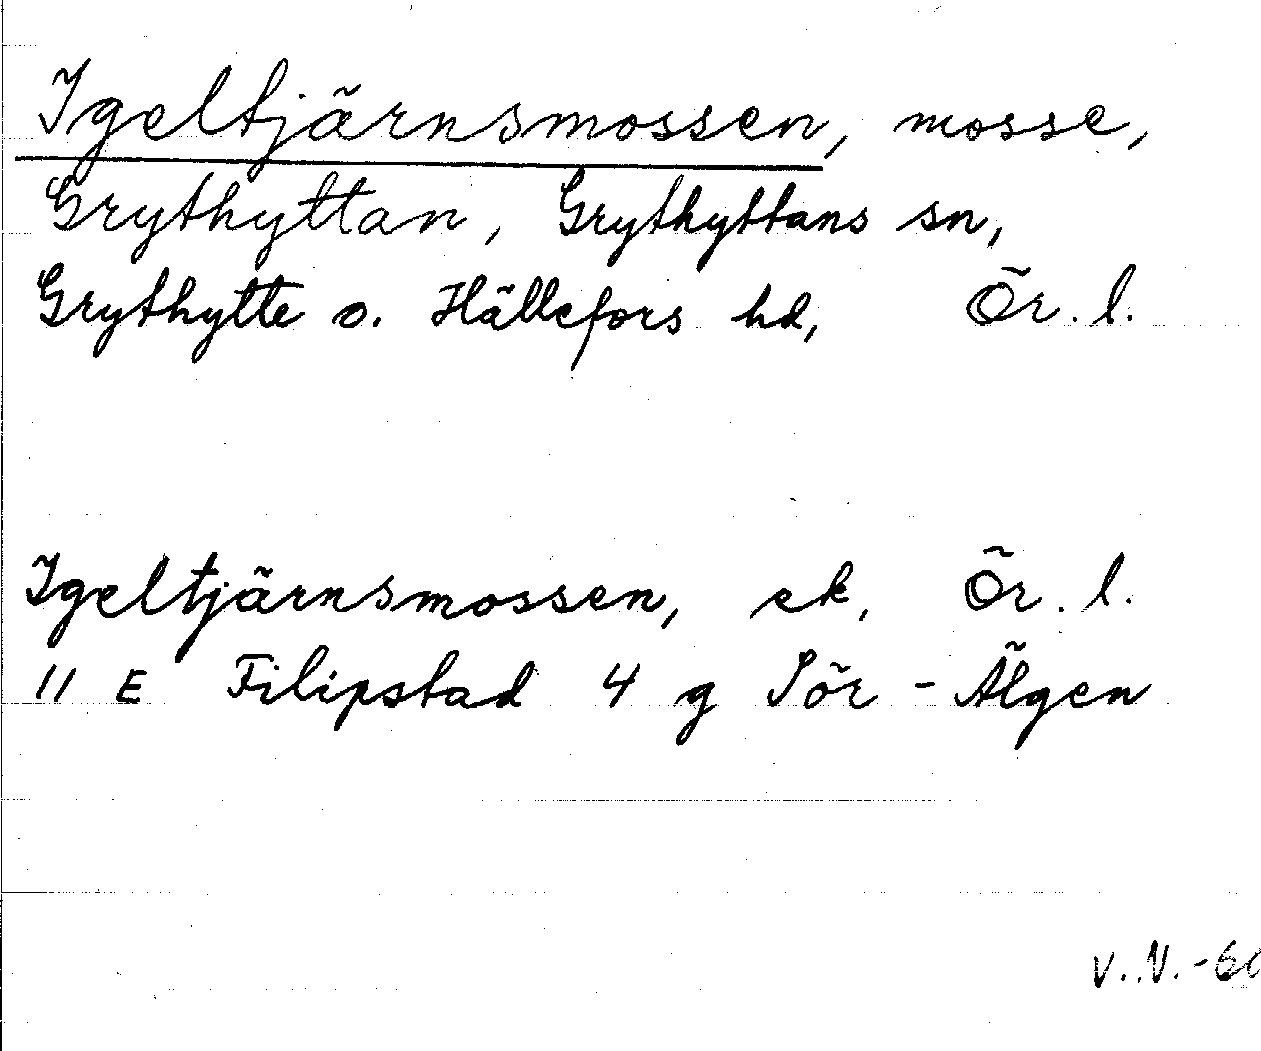 Igeltjärnsmossen, mosse,
Grythyttan, Grythyttans sn,
Grythytte o. Hällefors hd, Ör. l.
Igeltjärnsmossen, ek. Ör. l.
11 E Filipstad 4 g Sör-Älgen
V. N. -60